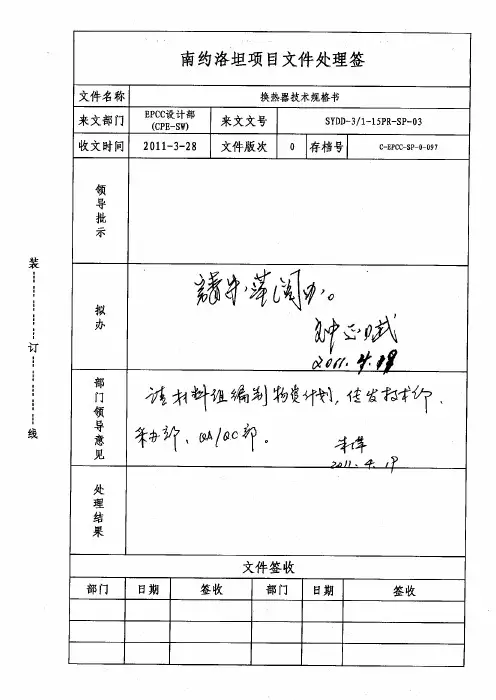 南约洛坦项目文件处理签
文件名称 换热器技术规格书
来文部门 EPCC设计部 (CPE-SW) 来文文号 SYDD-3/1-15PR-SP-03
收文时间 2011-3-28 文件版次 0 存档号 C-EPCC-SP-0-097
领导批示
拟办
阅办。
2011.4.19
部门领导意见
请材料组编制物资计划,传发技术部、
采办部、QA/QC部。
2011.4.19
处理结果
文件签收
部门 日期 签收 部门 日期 签收
装
订
线